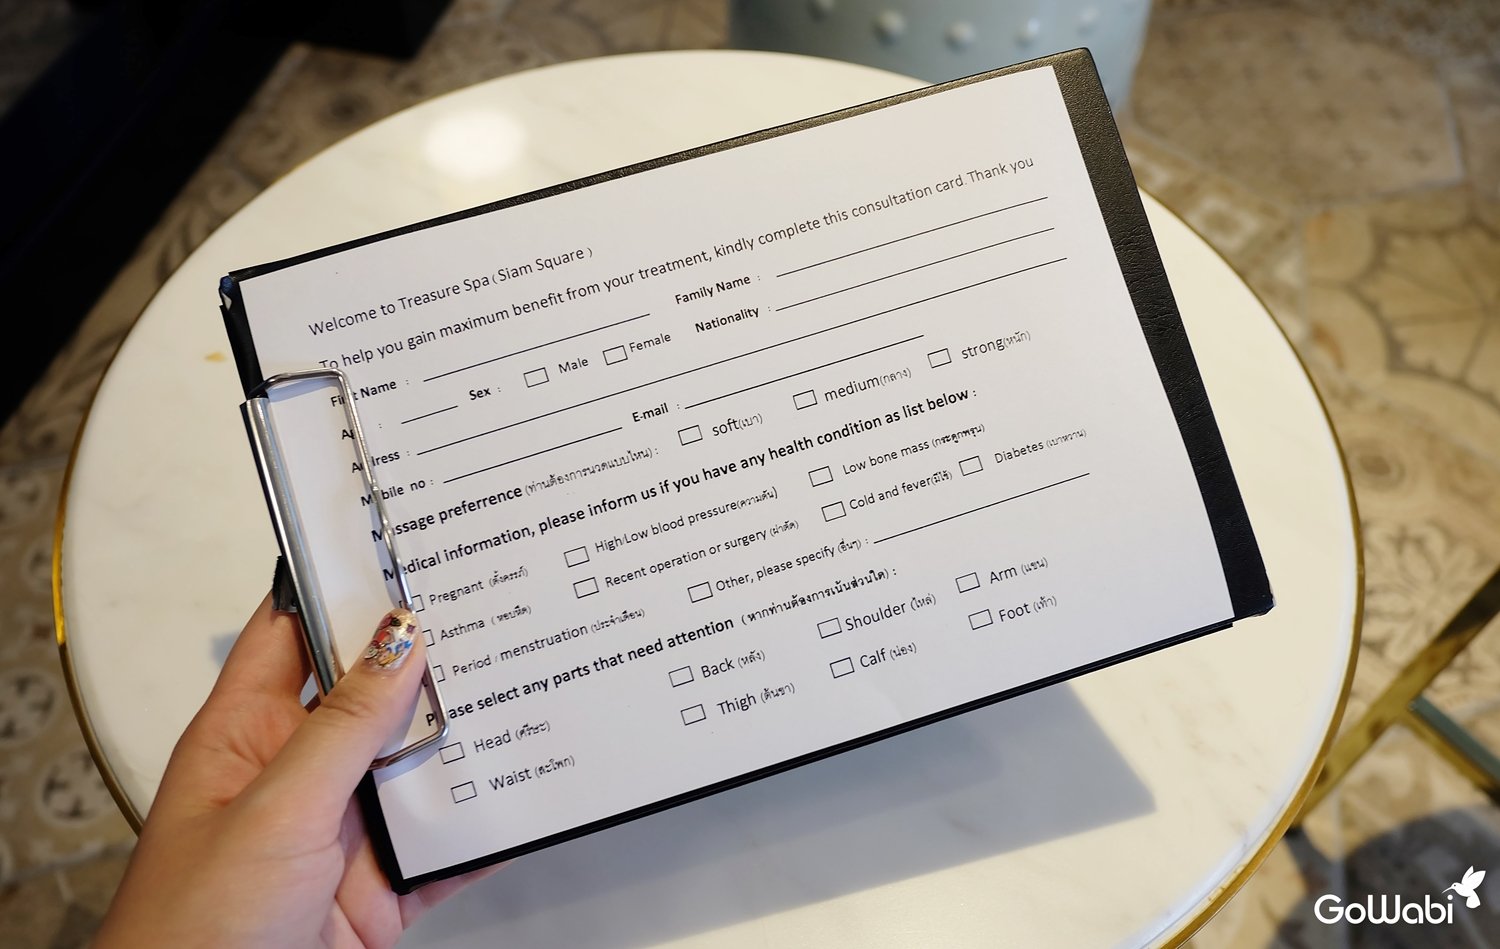 Welcome to Treasure Spa ( Siam Square )
To help you gain maximum benefit from your treatment, kindly complete this consultation card. Thank you
First Name : Family Name :
: Sex : Male Female Nationality :
Address :
Mobile no : E-mail :
Massage preferrence (ท่านต้องการนวดแบบไหน) : soft(เบา) medium(กลาง) strong(หนัก)
Medical information, please inform us if you have any health condition as list below :
Pregnant (ตั้งครรภ์) High/Low blood pressure(ความดัน) Low bone mass (กระดูกพรุน)
Asthma ( หอบหืด) Recent operation or surgery (ผ่าตัด) Cold and fever(มีไข้) Diabetes (เบาหวาน)
Period / menstruation (ประจำเดือน) Other, please specify (อื่นๆ) :
Please select any parts that need attention ( หากท่านต้องการเน้นส่วนใด) :
Head (ศรีษะ) Back (หลัง) Shoulder (ไหล่) Arm (แขน)
Waist (สะโพก) Thigh (ต้นขา) Calf (น่อง) Foot (เท้า)
GoWabi